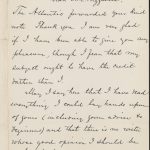 The Atlantic forwarded your kind
note. Thank you. I am very glad
if I have been able to give you any
pleasure, though I fear that my
subject ought to have the credit
rather than I.
May I say too that I have read
everything I could lay hands upon
of yours (including your advice to
beginners) and that there is no writer
whose good opinion I should be